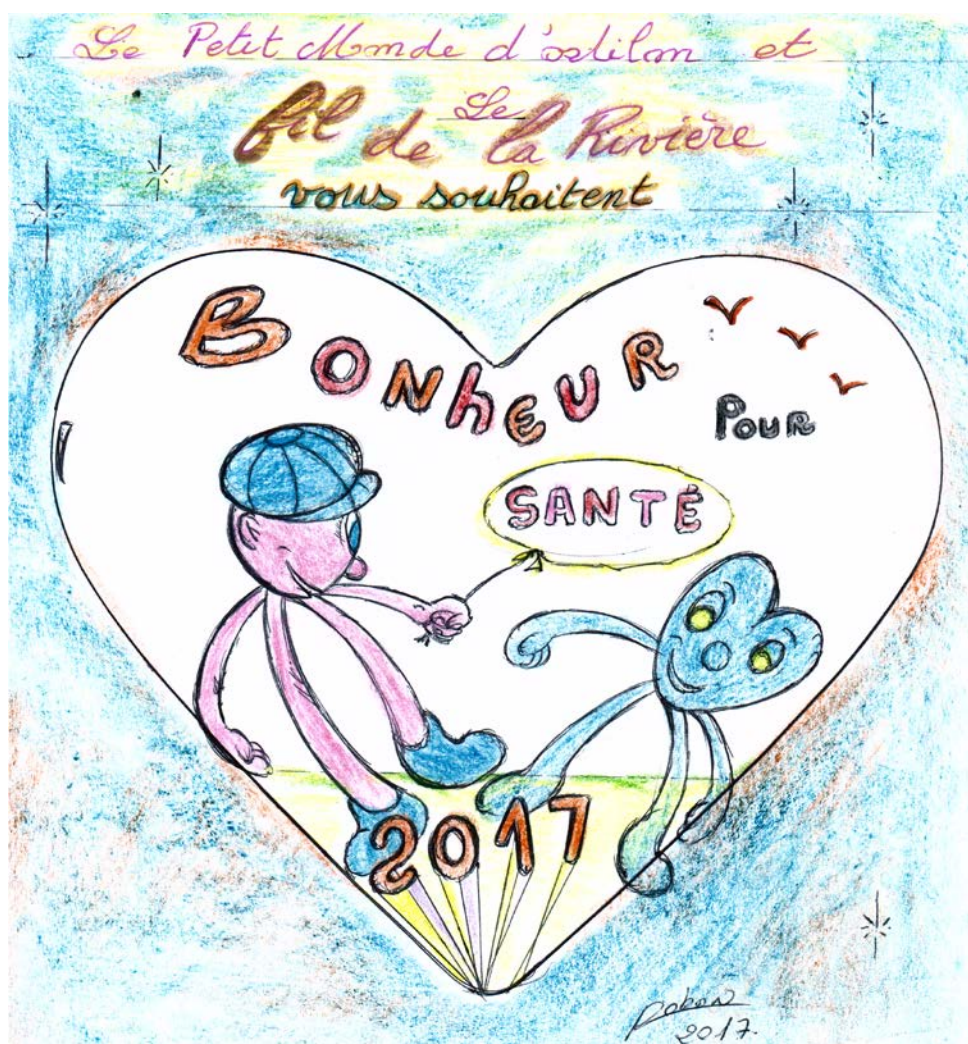 Le Petit Monde d'ostilon et
Le
fil de la Rivière
vous souhaitent
BONhEUR
POUR
SANTÉ
2017
2017.